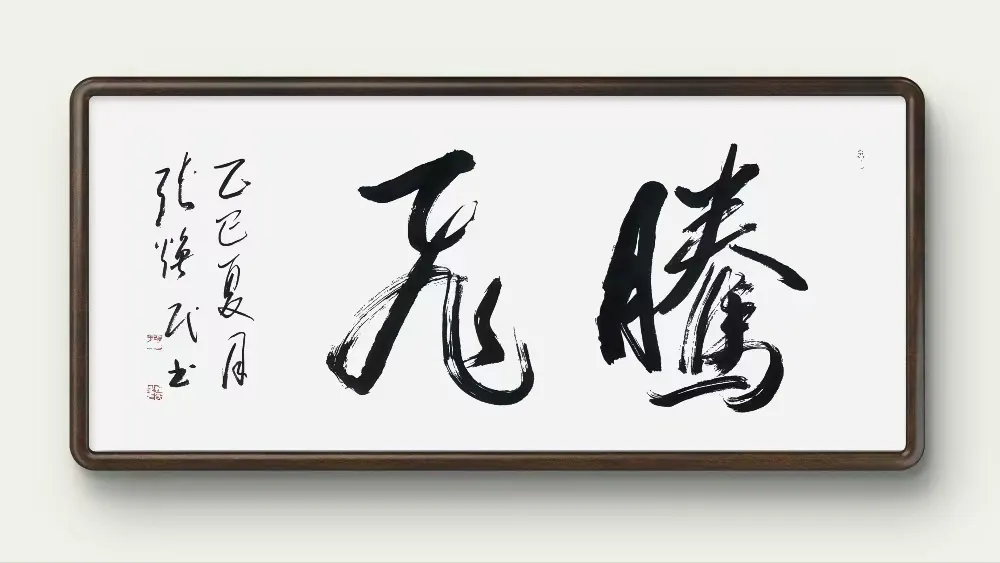 騰飛
乙巳夏月
張煥民書